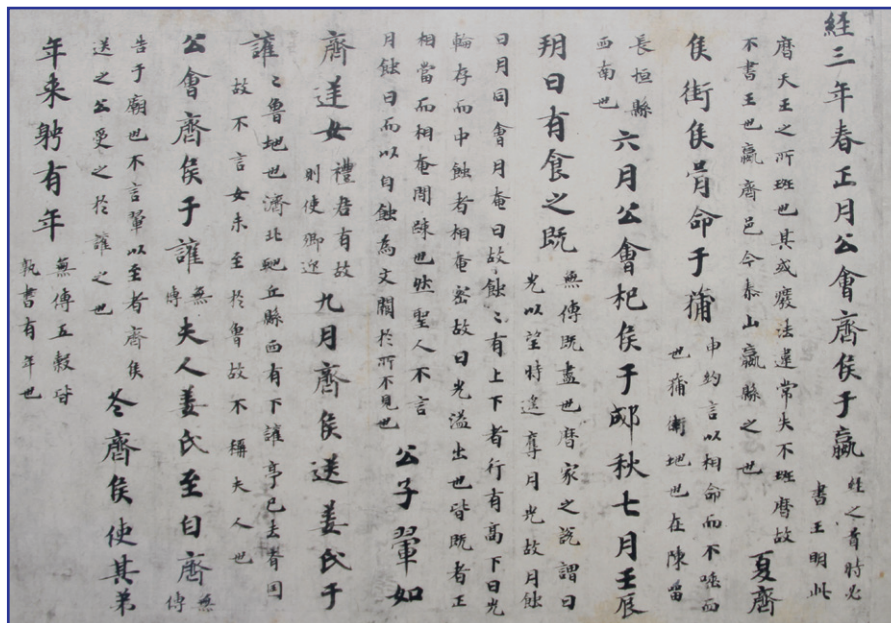 経三年春正月公會齊侯于嬴
経之首時必
書王明此
曆天王之所班也其或廢法違常失不班曆故
不書王也嬴齊邑今泰山嬴縣之也
夏齊
侯衛侯胥命于蒲
申約言以相命而不喢而
也蒲衛地也在陳留
長垣縣
西南也
六月公會杞侯于郕秋七月壬辰
朔日有食之既
無傳既盡也曆家之說謂日
光以望時遙奪月光故月蝕
日月同會月奄日故蝕〻有上下者行有高下日光
輪存而中蝕者相奄密故日光溢出也皆既者正
相當而相奄間疎也然聖人不言
月蝕日而以自蝕為文闕於所不見也
公子翬如
齊逆女
禮君有故
則使卿逆
九月齊侯送姜氏于
讙
〻魯地也濟北虵丘縣西有下讙亭已去齊国
故不言女未至於魯故不稱夫人也
公會齊侯于讙
無
傳
夫人姜氏至自齊
無
傳
告于廟也不言翬以至者齊侯
送之公受之於讙之也
冬齊侯使其弟
年来聘有年
無傳五穀皆
熟書有年也